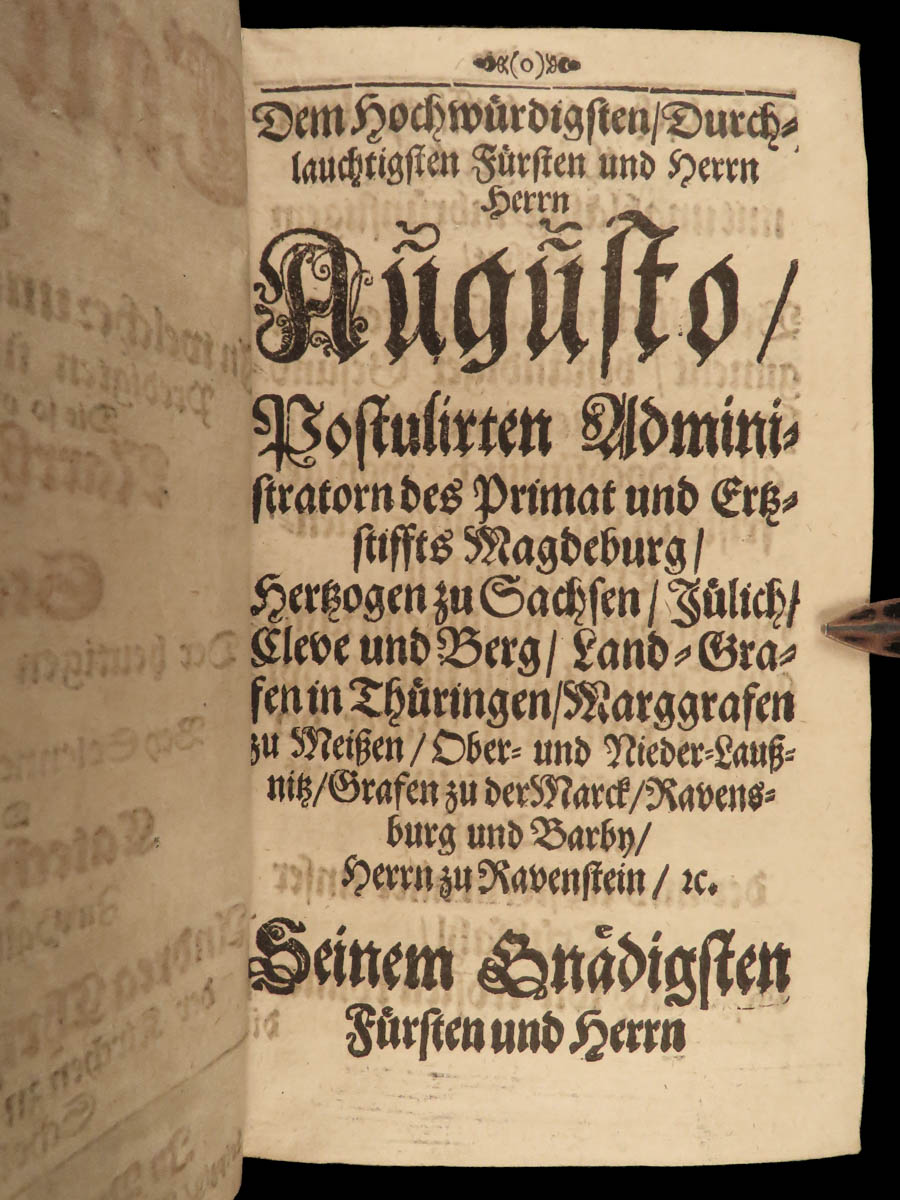 (o)
Dem Hochwürdigsten/Durch-
lauchtigsten Fürsten und Herrn
Herrn
Augusto/
Postulirten Admini-
stratorn des Primat und Ertz-
stiffts Magdeburg/
Hertzogen zu Sachsen/Jülich/
Cleve und Berg/Land-Gra-
fen in Thüringen/Marggrafen
zu Meißen/Ober- und Nieder-Lauß-
nitz/Grafen zu der Marck/Ravens-
burg und Barby/
Herrn zu Ravenstein/ꝛc.
Seinem Gnädigsten
Fürsten und Herrn